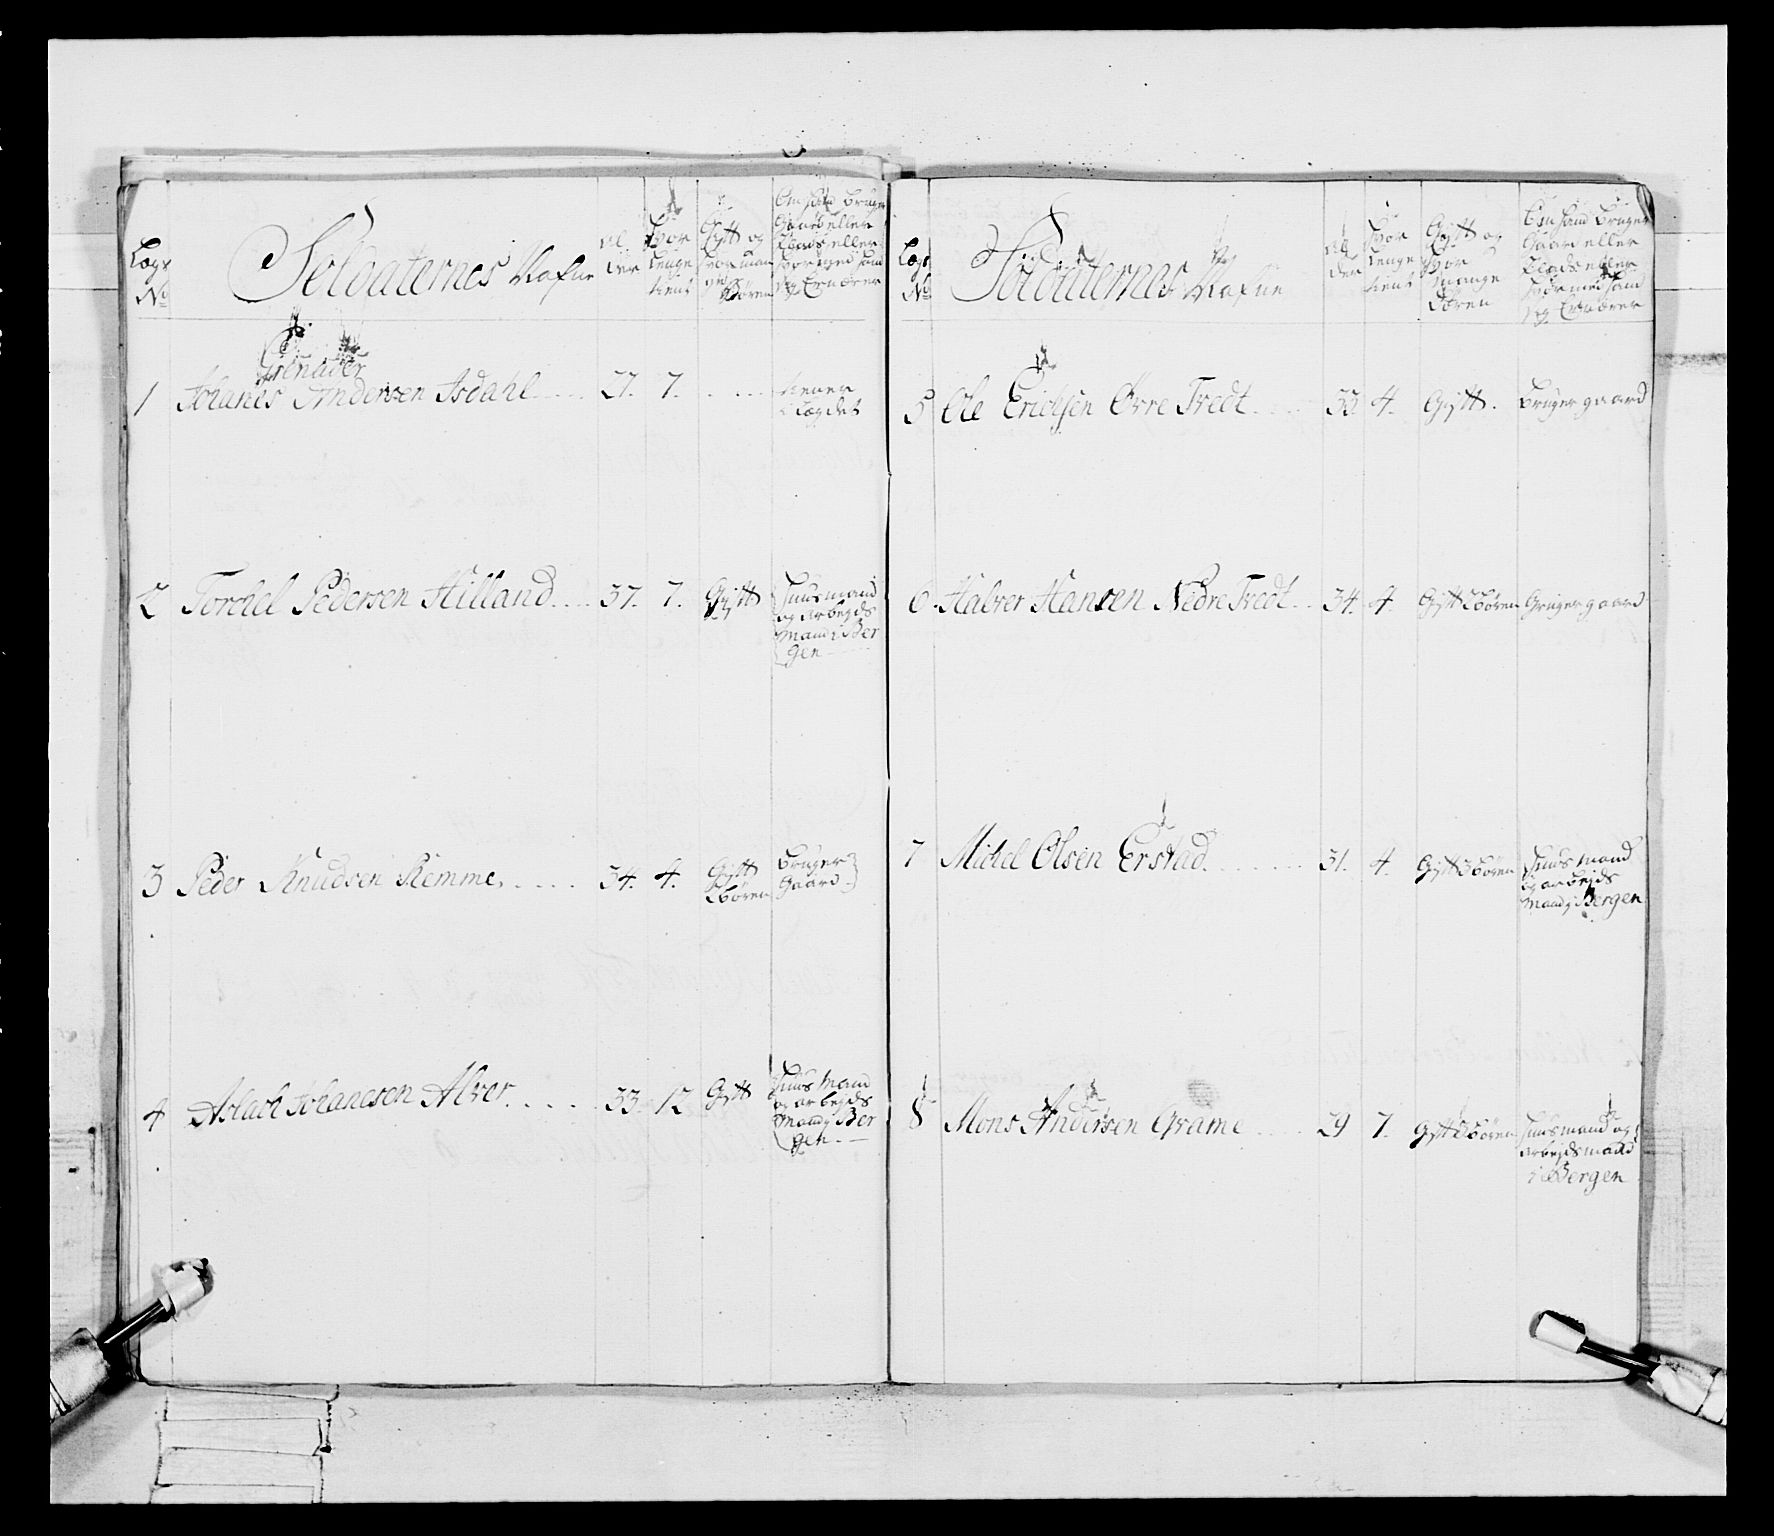 Lægs No
Soldaternes Nafne
Al der
Hvor lenge tient
Gift og hvor man ge Bören
Om hand bruger Gaard eller Plads eller hvor med hand sig Ernærer
Grenader
1 Johanes Andersen Isdahl..... 27. 7. .... tiener i Lægdet
2 Torchel Pedersen Hilland.... 37. 7. Gift Huusmand og arbejds Mand i Ber gen
3 Peder Knudsen Remme...... 34. 4. Gift 2 bören bruger Gaard
4 Aslach Johanesen Alver..... 33. 12 Gift Huus Mand og arbejds Mand i Ber gen
Lægs No
Soldaternes Nafne
Al der
Hvor lenge tient
Gift og Hvor mange bören
Om hand bruger Gaard eller Plads eller hvor med hand sig Ernærer
5 Ole Erichsen Övre Tvedt.... 33 4. Gift. bruger gaard
6. Halver Hansen Nedre Tvedt.. 34. 4. Gift 2 bören Gruger gaard
7 Michel Olsen Erstad....... 31. 4. Gift 3 bören Huus mand og arbejds Mand i Bergen
8 Mons Andersen Grame.... 29 7. Gift bören Huusmand og arbejds mand i Bergen